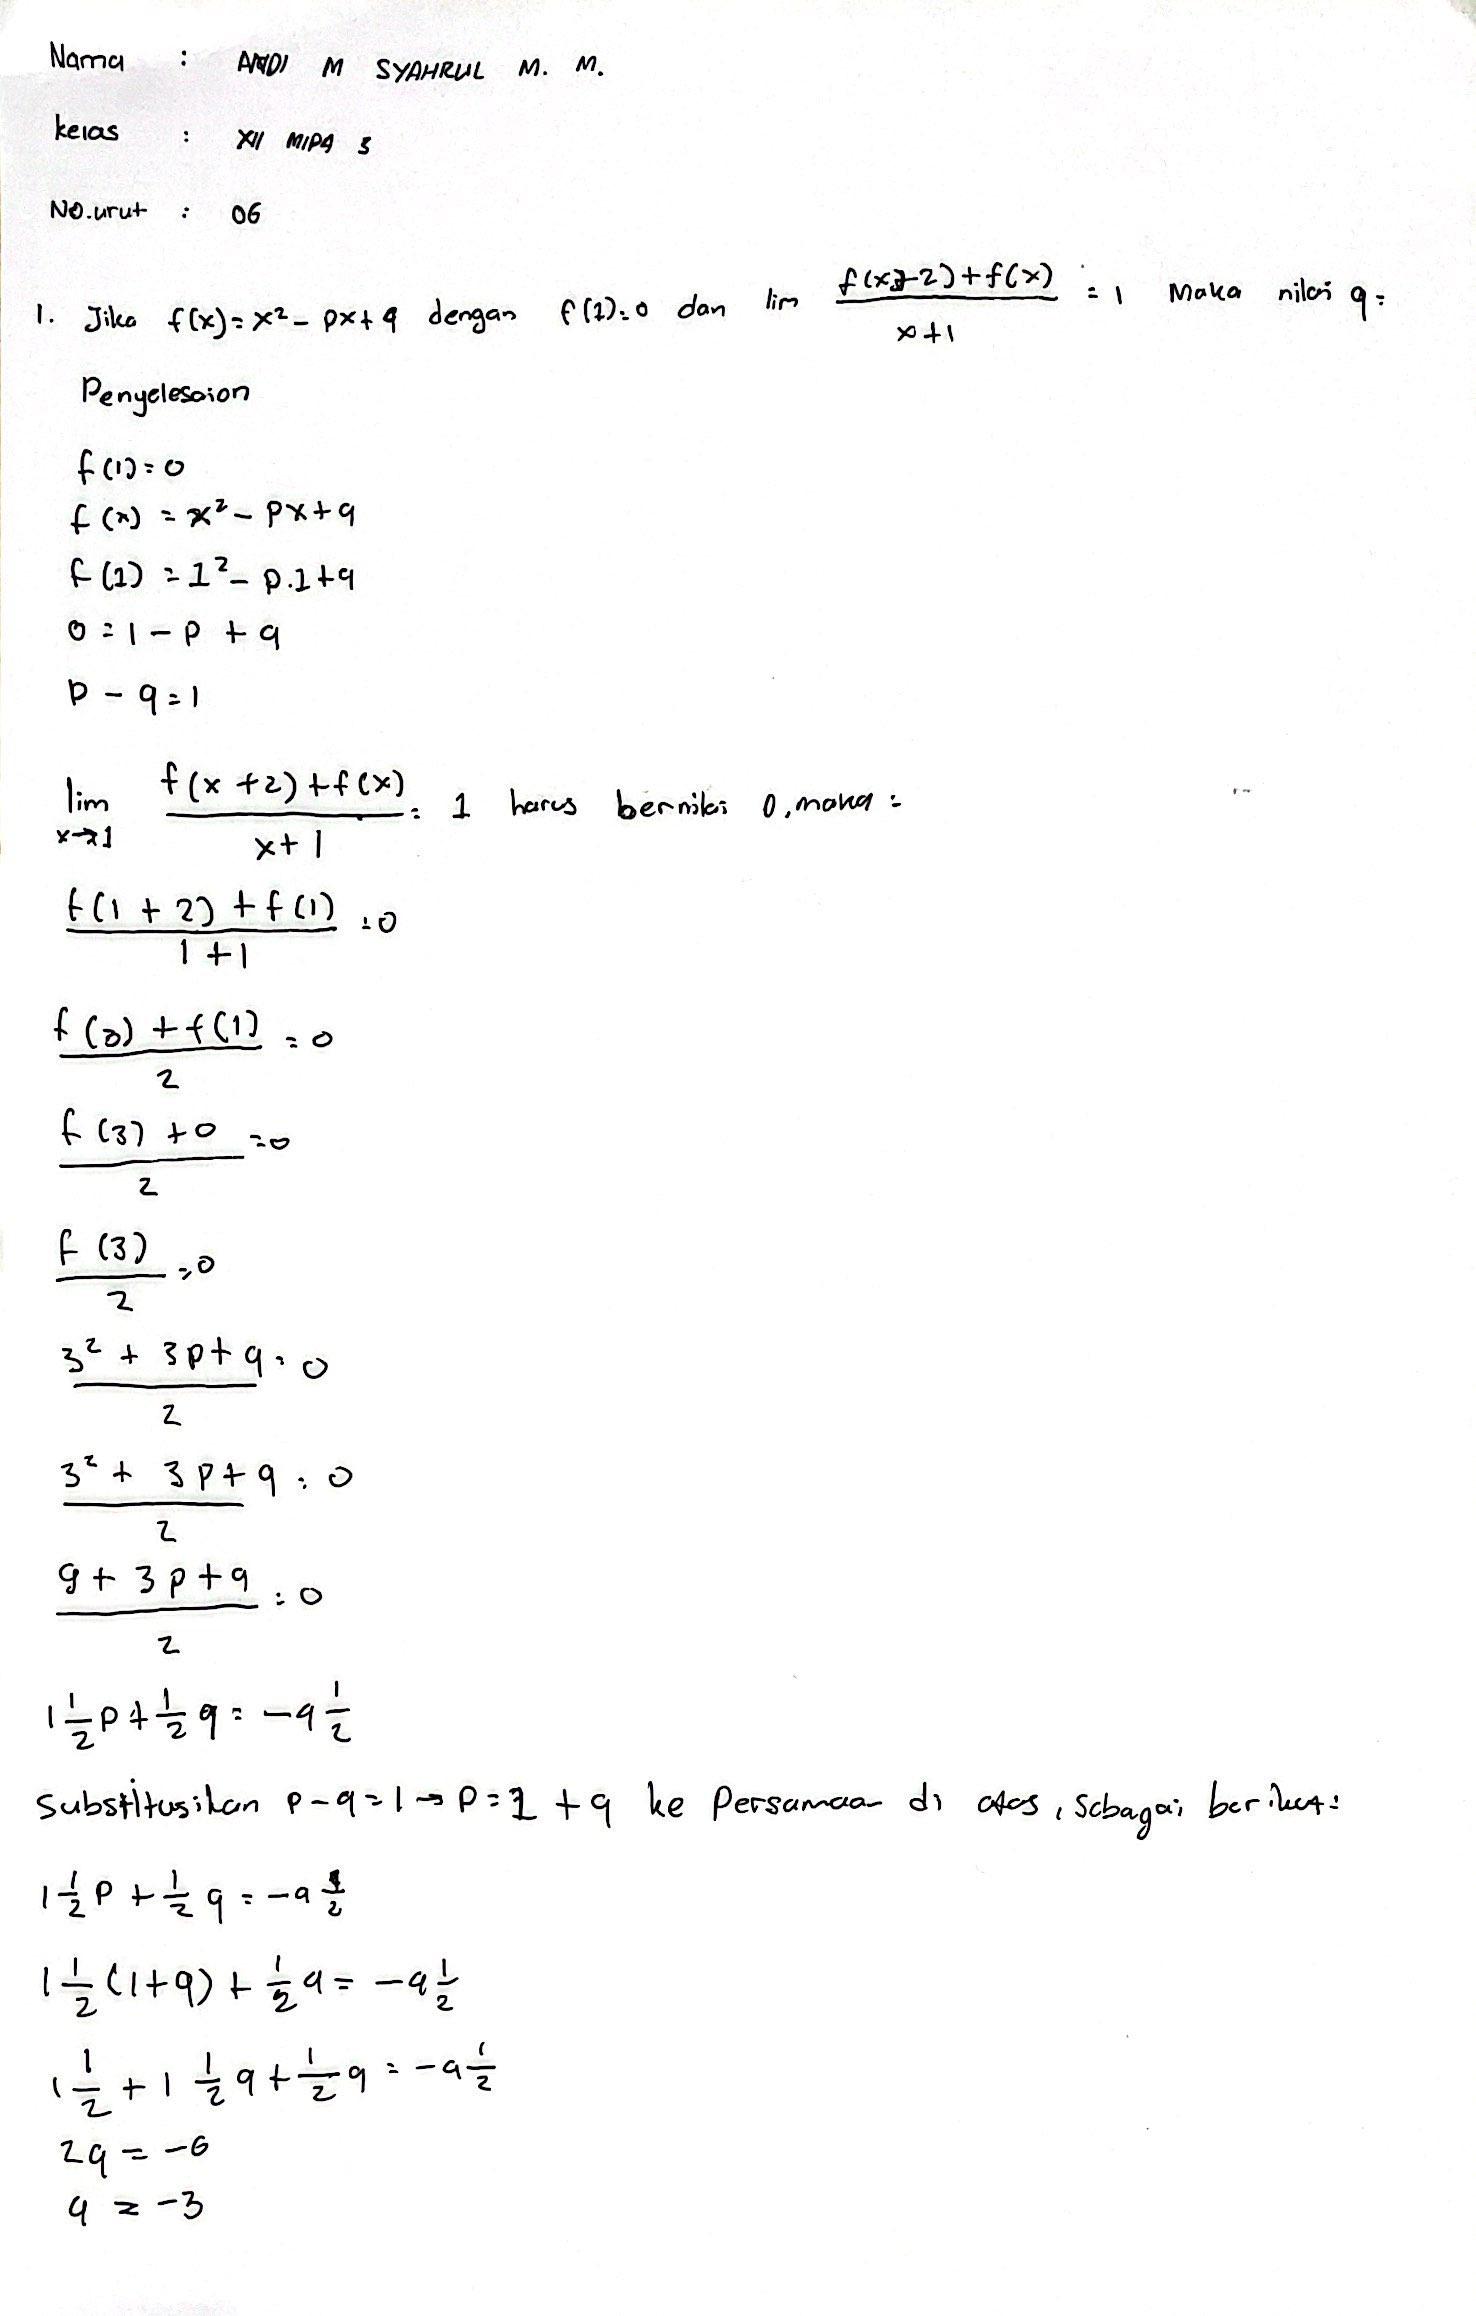 Nama : ANDI M SYAHRUL M. M.
kelas : XII MIPA 3
NO.urut : 06
1. Jika f(x) = x² - px + q dengan f(1) = 0 dan lim f(x+2)+f(x) / x+1 = 1 Maka nilai q =
Penyelesaian
f(1) = 0
f(x) = x² - px + q
f(1) = 1² - p.1 + q
0 = 1 - p + q
p - q = 1
lim x→1 f(x+2)+f(x) / x+1 = 1 harus bernilai 0, maka =
f(1+2)+f(1) / 1+1 = 0
f(3)+f(1) / 2 = 0
f(3)+0 / 2 = 0
f(3) / 2 = 0
3² + 3p + q / 2 = 0
3² + 3p + q / 2 = 0
9 + 3p + q / 2 = 0
1 1/2 p + 1/2 q = -9 1/2
Substitusikan p - q = 1 → p = 1 + q ke Persamaan di atas, Sebagai berikut:
1 1/2 p + 1/2 q = -9 1/2
1 1/2 (1+q) + 1/2 q = -9 1/2
1 1/2 + 1 1/2 q + 1/2 q = -9 1/2
2q = -6
q = -3